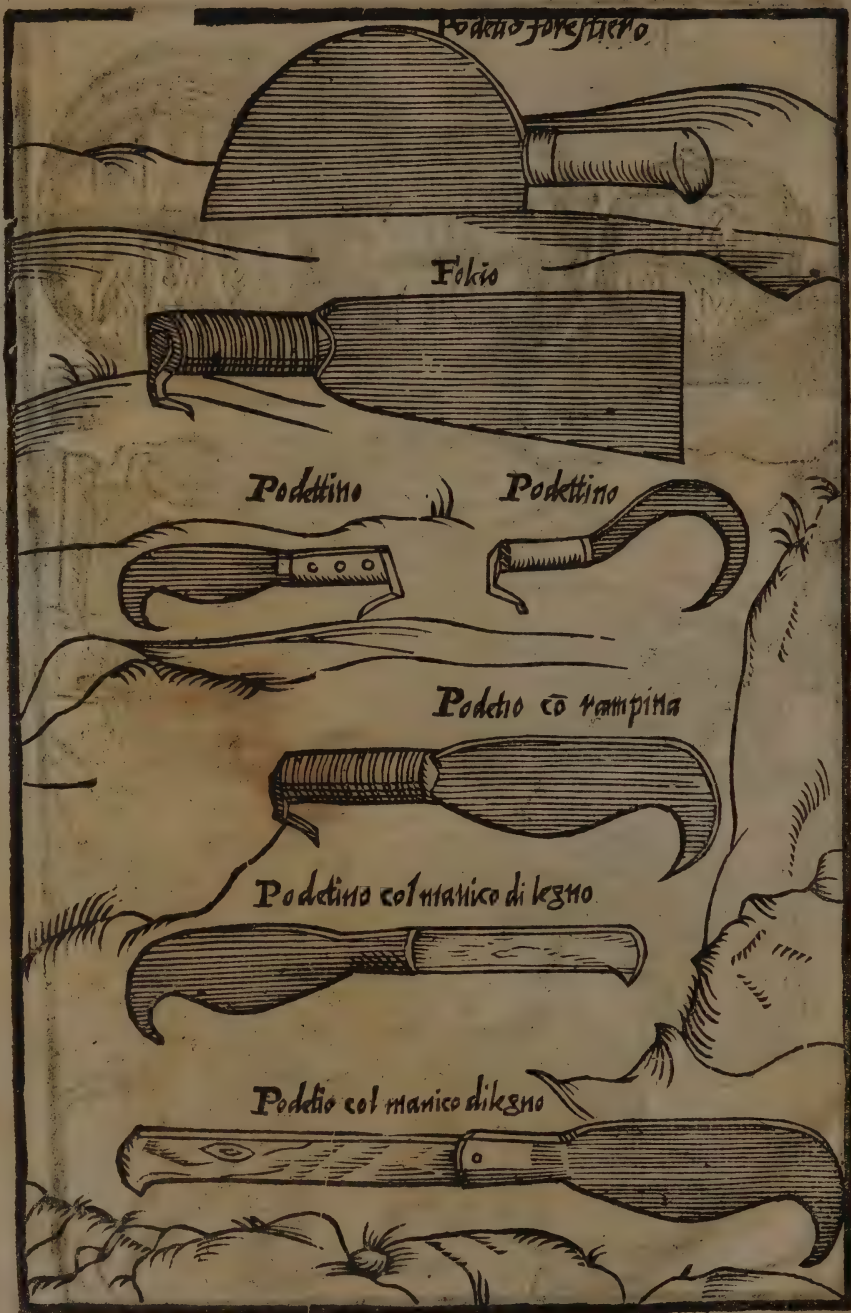 Podetto forestiero
Fokio
Podettino
Podettino
Podetto cō rampina
Podetino col manico di legno
Podetto col manico di legno